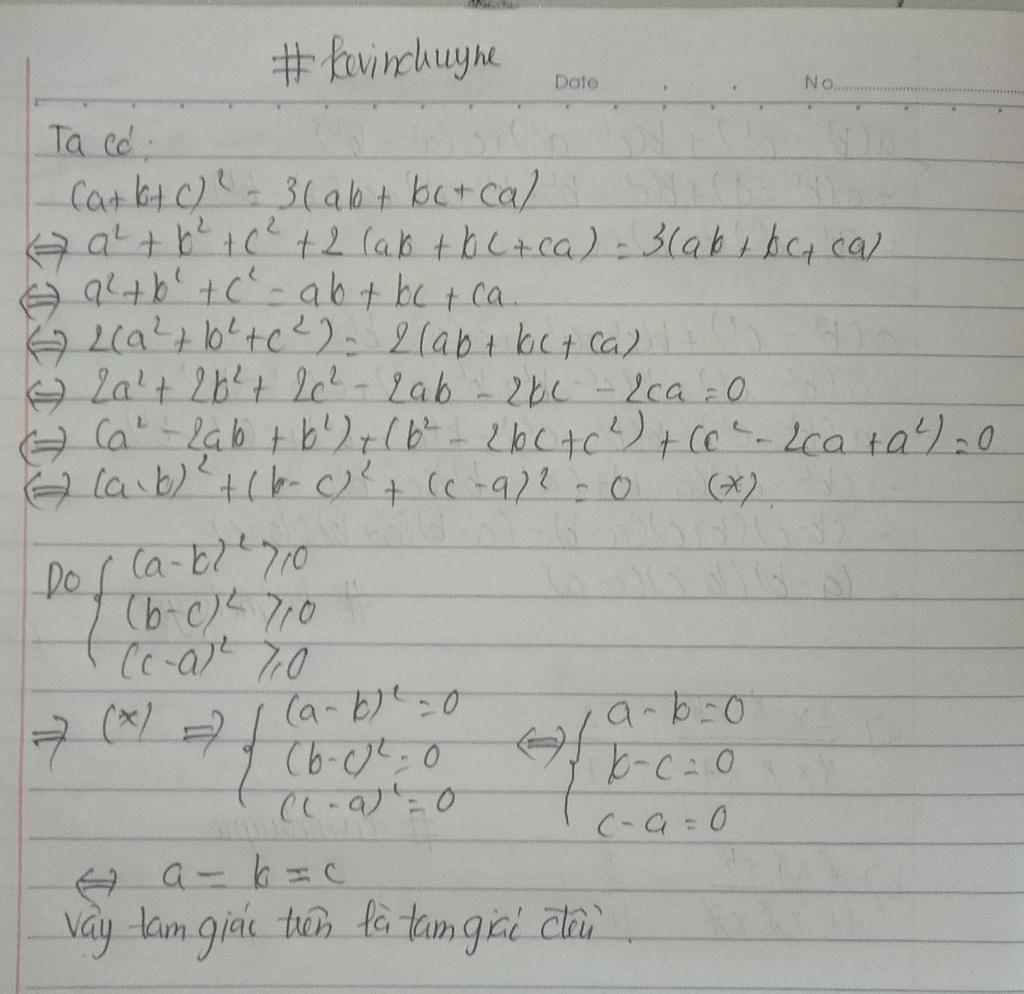 # kevinchuyne
Date . . No.
Ta có:
(a+b+c)² = 3(ab + bc + ca)
⇔ a² + b² + c² + 2(ab + bc + ca) = 3(ab + bc + ca)
⇔ a² + b² + c² = ab + bc + ca.
⇔ 2(a² + b² + c²) = 2(ab + bc + ca)
⇔ 2a² + 2b² + 2c² - 2ab - 2bc - 2ca = 0
⇔ (a² - 2ab + b²) + (b² - 2bc + c²) + (c² - 2ca + a²) = 0
⇔ (a-b)² + (b-c)² + (c-a)² = 0 (*).
Do { (a-b)² ≥ 0
(b-c)² ≥ 0
(c-a)² ≥ 0
⇒ (*) ⇒ { (a-b)² = 0 ⇔ { a-b = 0
(b-c)² = 0 b-c = 0
(c-a)² = 0 c-a = 0
⇔ a = b = c
Vậy tam giác trên là tam giác đều.